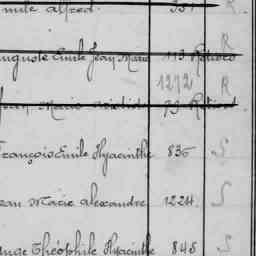 mile Alfred. 351 R.
R
Auguste Emile Jean Marie 113 Retiers
1212 R
Jean Marie 73 Retiers
François Emile Hyacinthe 835 S
Jean Marie Alexandre 1224 S
Ange Théophile Hyacinthe 848 S